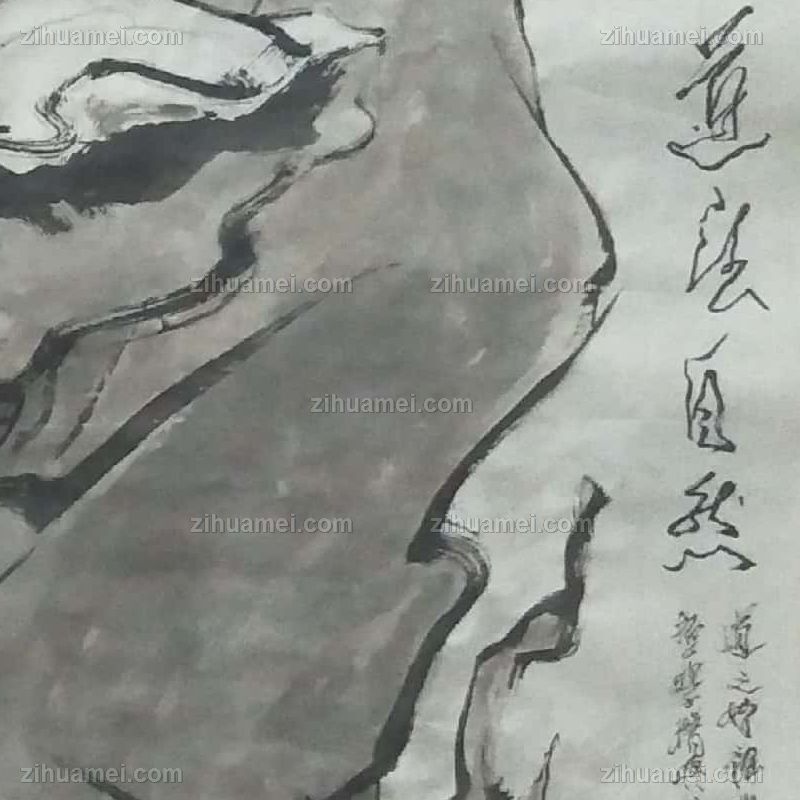 道法自然
道之妙
哲学
zihuamei.com
zihuamei.com
zihuamei.com
zihuamei.com
zihuamei.com
zihuamei.com
zihuamei.com
zihuamei.com
zihuamei.com